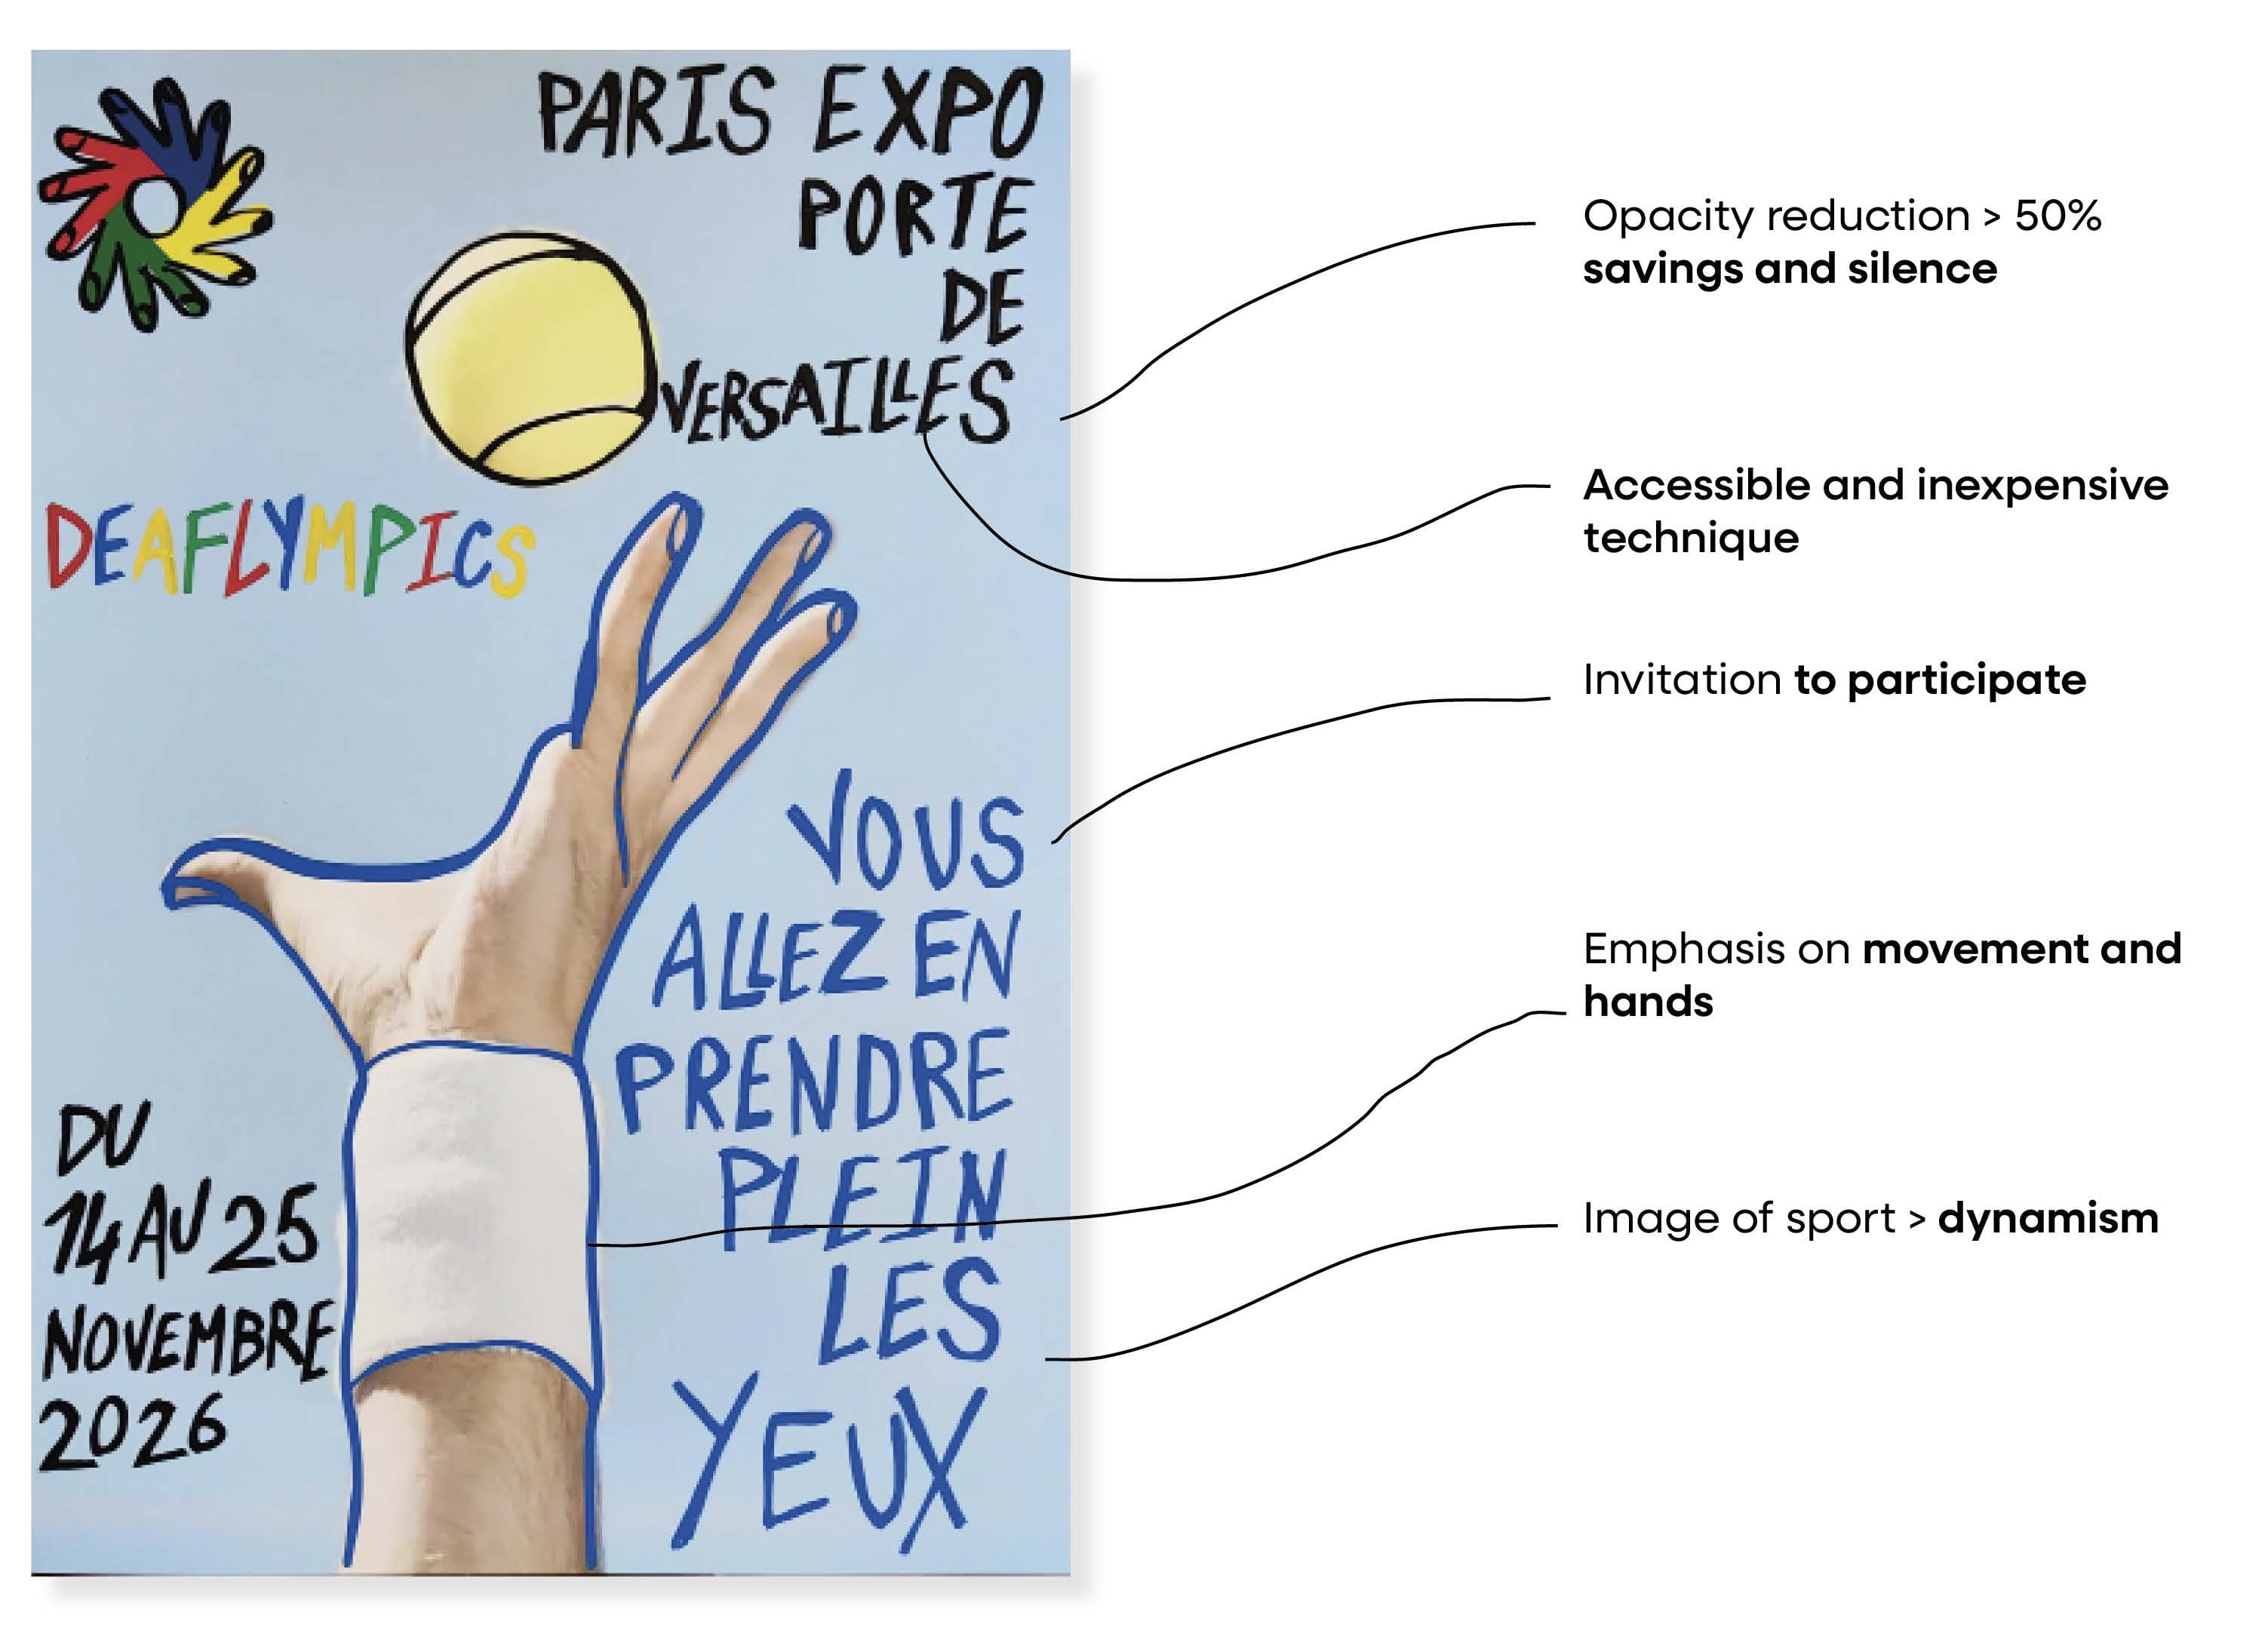 PARIS EXPO
PORTE
DE
VERSAILLES
DEAFLYMPICS
VOUS
ALLEZ EN
PRENDRE
PLEIN
LES
YEUX
DU
14 AU 25
NOVEMBRE
2026
Opacity reduction > 50%
savings and silence
Accessible and inexpensive
technique
Invitation to participate
Emphasis on movement and
hands
Image of sport > dynamism